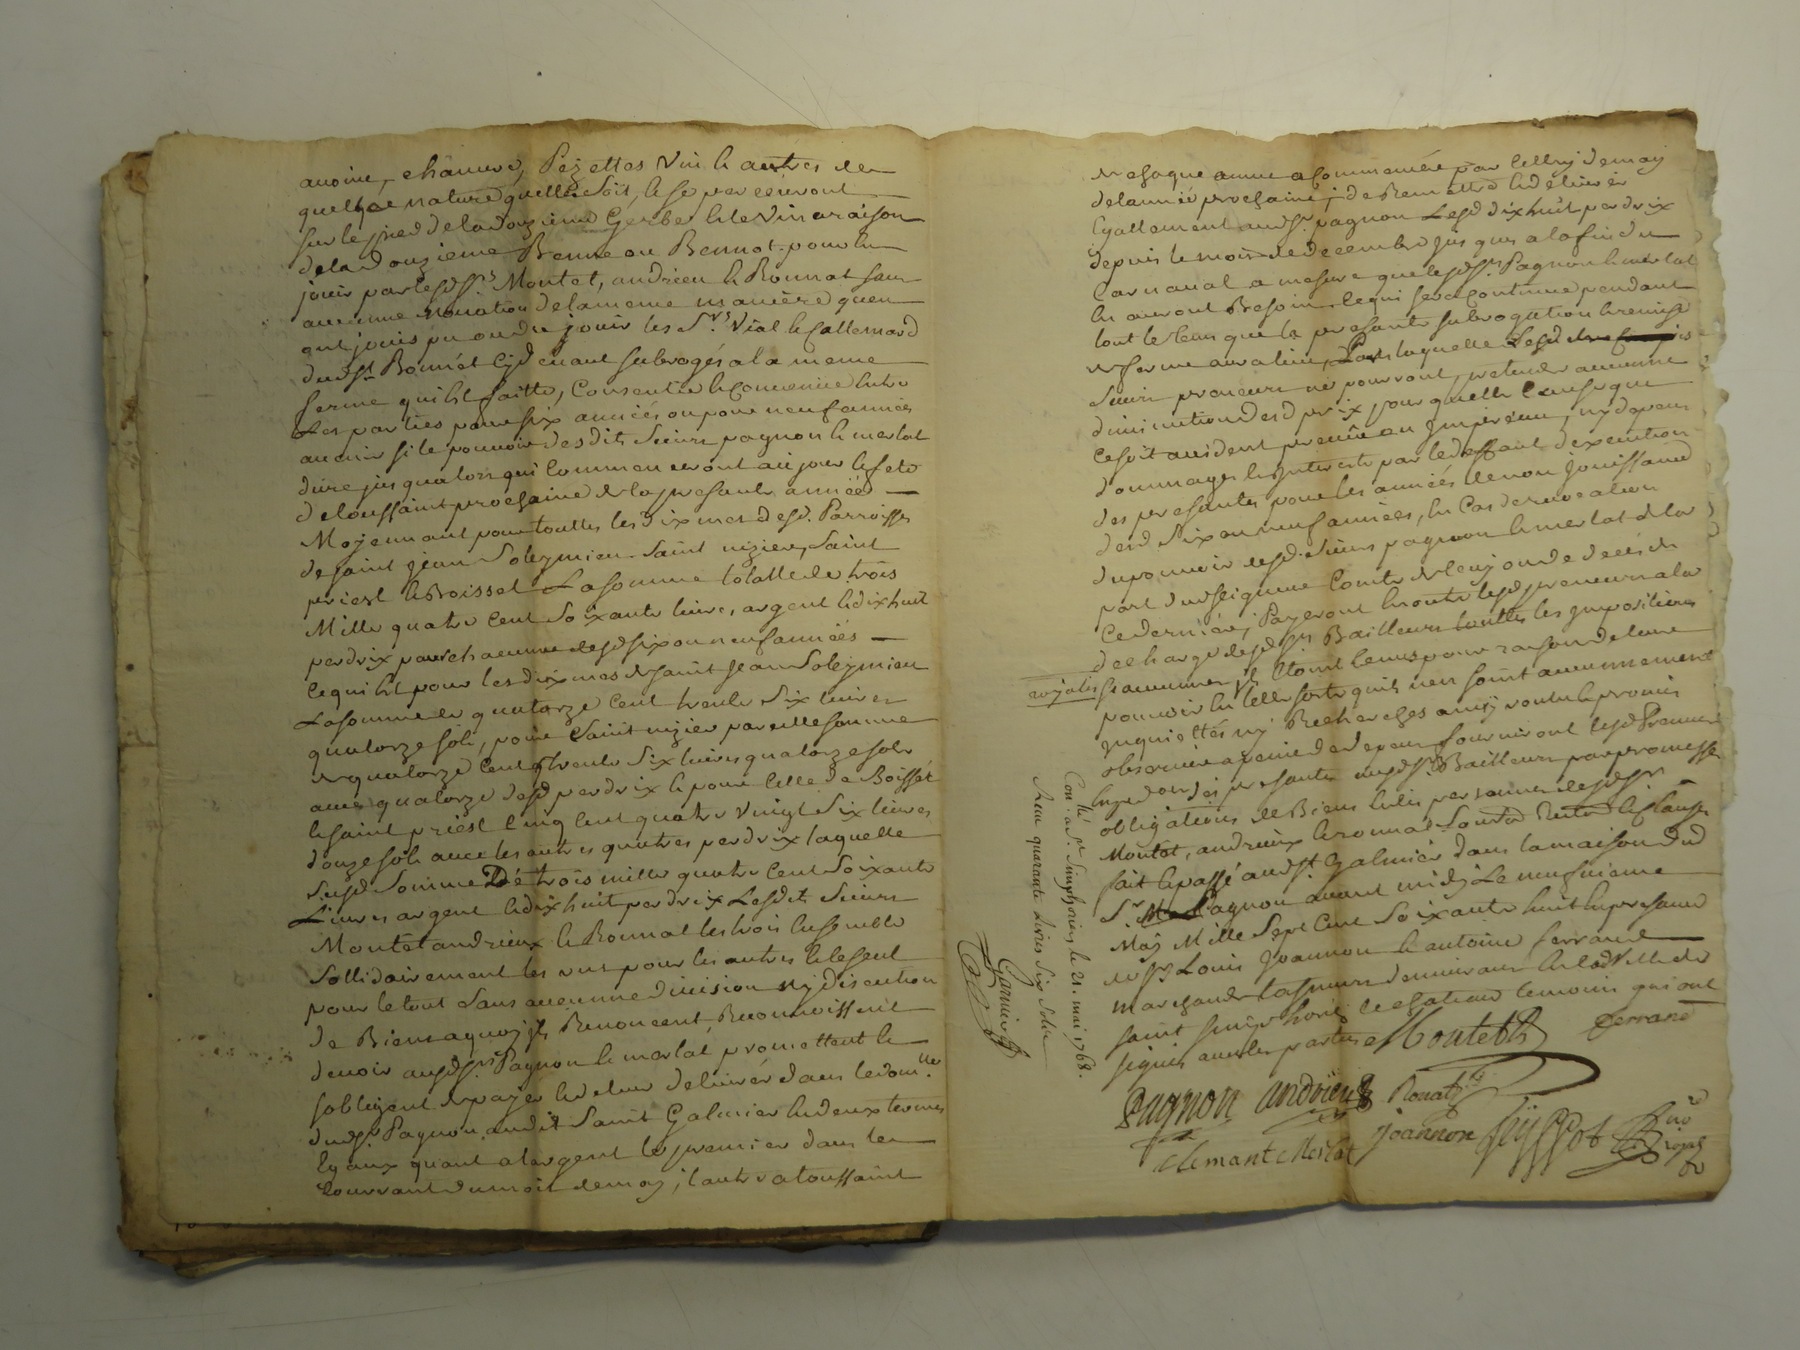 avoine, chanvre, Pezettes Vin & autres de
quelque nature quelle Soit, & se percevront
sur le pied de la douzieme Gerbe & le Vin a raison
de la douzieme Benne ou Bennot. pour en
jouir par lesd. Srs. Montet, andrieu & Ronnat sans
aucunne Novation de la meme maniere quen
ont jouis pu ou du jouir les Srs. Vial & Callemard
dud. St. Bonnet Cy devant subrogés a la meme
ferme qui Est faitte, Consentie & Convenue Entre
Les parties pour six années ou pour neuf années
au cas si le pouvoir desdits Sieurs pagnon & merlat
dure jusqualors qui Commenceront au jour & fete
de toussaint prochaine de la presante année —
Moyennant pour touttes les dixmes desd. Parroisses
de saint jean Soleymieu. Saint nizier, Saint
priest & Boisset La somme totalle de trois
Mille quatre Cent Soixante livres, argent & dix huit
perdrix pour chacunne desd. six ou neuf années —
Ce qui Est pour les dixmes de saint Jean Soleymieu
La somme de quatorze Cent trente Six livres
quatorze sols, pour Saint nizier pareille somme
de quatorze Cent trente Six livres quatorze sols
avec quatorze desd. perdrix & pour Celle de Boisset
& saint priest Cinq Cent quatre Vingt Six livres
douze sols avec les autres quatres perdrix laquelle
susd. Somme De trois mille quatre Cent Soixante
Livres argent & dix huit perdrix Lesdits Sieurs
Montet andrieux & Ronnat les trois Ensemble
Sollidairement les uns pour les autres & le seul
pour le tout Sans aucunne division ny discution
de Biens aquoy ils Renoncent, Reconnoissent
devoir auxd. Srs. Pagnon & merlat promettent &
sobligent de payer & de leur delivrer dans le domlle
dud. Sr. Pagnon audit Saint Galmier En deux termes
Egaux quant a largent le premier dans le
Courrant du mois de may, l'autre a toussaint
de chaque année a Commencer par Celluy de may
de lannée prochaine, & de Remettre & delivrer
Egallement aud. Sr. pagnon Lesd. dix huit perdrix
depuis le mois de decembre jusques a la fin du
Carnaval a mesure que lesd. Srs. Pagnon & merlat
En auront Besoin, & qui sera Continué pendant
tout le tems que la presante subrogation & remise
de ferme aura lieu, Par laquelle Lesd.
Sieurs preneurs ne pourront, pretendre aucunne
diminution desd. prix pour quelle Cause que
Ce soit accident prevû ou Imprévu, ny depens
dommages & Interests par le deffaut d'execution
des presantes pour les années de non jouissance
desd. Six ou neuf années, En Cas de revocation
du pouvoir desd. Sieurs pagnon & merlat de la
part du seigneur Comte de Lenjon ou de decés de
Ce dernier, Payeront En outre lesd. preneurs a la
decharge desd. Srs. Bailleurs touttes les Impositions
royales sy aucunnes Ils Etoint tenus pour raison de leur
pouvoir En telle sorte quils nen soint aucunnement
Inquiettés ny Recherchés ainsy voulu & promis
observer a peine de depens fourniront lesd. Preneurs
Expedon des presantes auxd. Srs. Bailleurs par promesse
obligations de Biens & des personnes desd. Srs.
Montet, andrieux & ronnat Soumon Renon & Clauses
fait & passé aud. St. Galmier dans la maison dud.
Sr. Pagnon avant midy Le neufvieme
May Mille Sept Cent Soixante huit En presance
de Sr. Louis Joannon & antoine ferrand
marchands demeurans En lad. Ville de
saint simphorien le chateau temoins qui ont
signés avec les parties Monteth ferrand
Pagnon andrieux Ronat
Joannon
Clemant Merlat
Con.lé a St. Simphorien le 21. mai 1768.
Reçu quarante livres six sols
Garnier